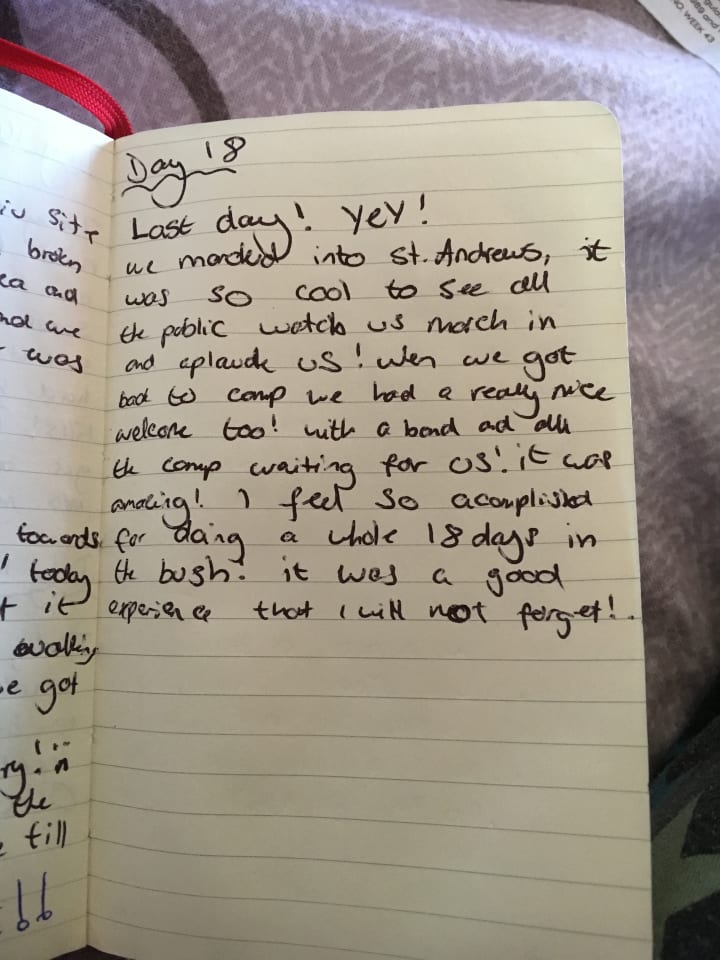 Day 18
Last day! yey!
we marched into St. Andrews, it
was so cool to see all
the public watch us march in
and aplaude us! When we got
back to camp we had a really nice
welcome too! with a band and all
the camp waiting for us! it was
amazing! I feel so acomplished
for doing a whole 18 days in
the bush! it was a good
experience that I will not forget!.
site
broken
and
was
towards
today
it
walking
got
the
till
!!
NO. WEEK 43